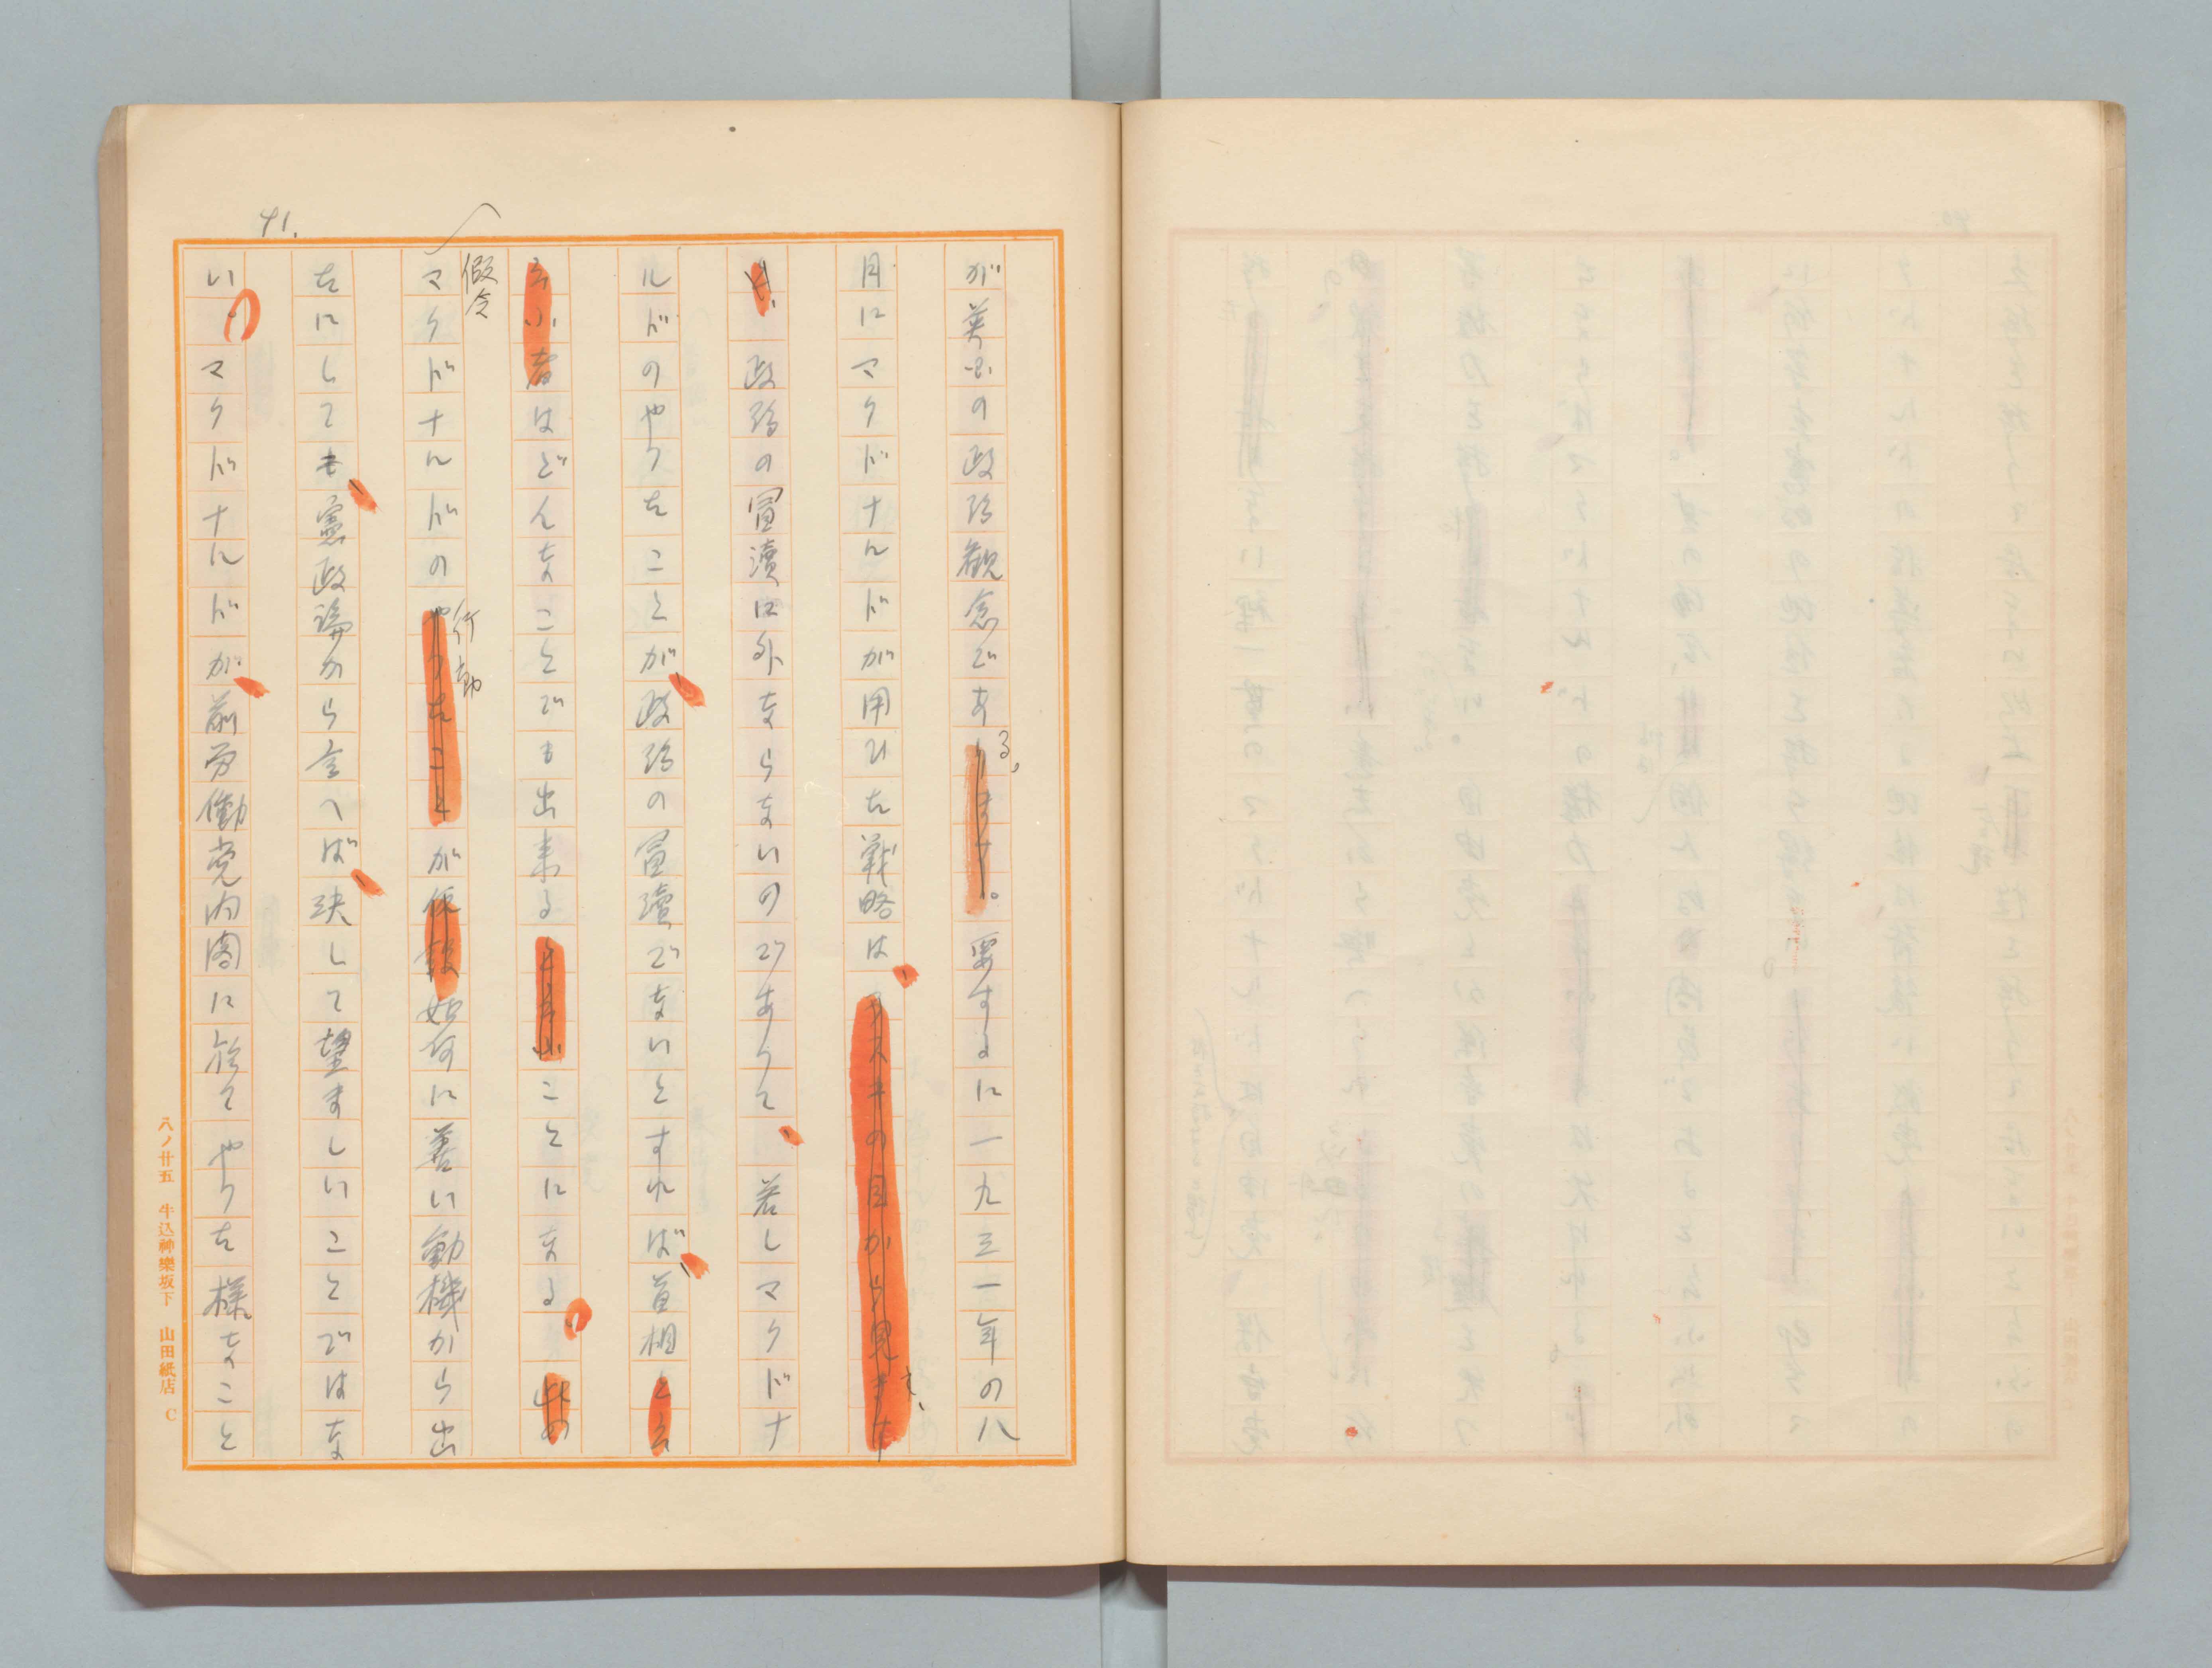 41.
が英国の政治観念であります。る。要するに一九三一年の八
月にマクドナルドが用ひた戦略は、の目から見ます
政治の冒瀆に外ならないのであつて、若しマクドナ
ルドのやつたことが、政治の冒瀆でないとすれば、首相と云
云ふ者はどんなことでも出来ると云ふことになる。此の
假令
マクドナルドのやつたこと行動が仮令如何に善い動機から出
たにしても、憲政論から言へば、決して望ましいことではな
い。マクドナルドが、前労働党内閣に於てやつた様なこと
八ノ廿五 牛込神樂坂下 山田紙店 C